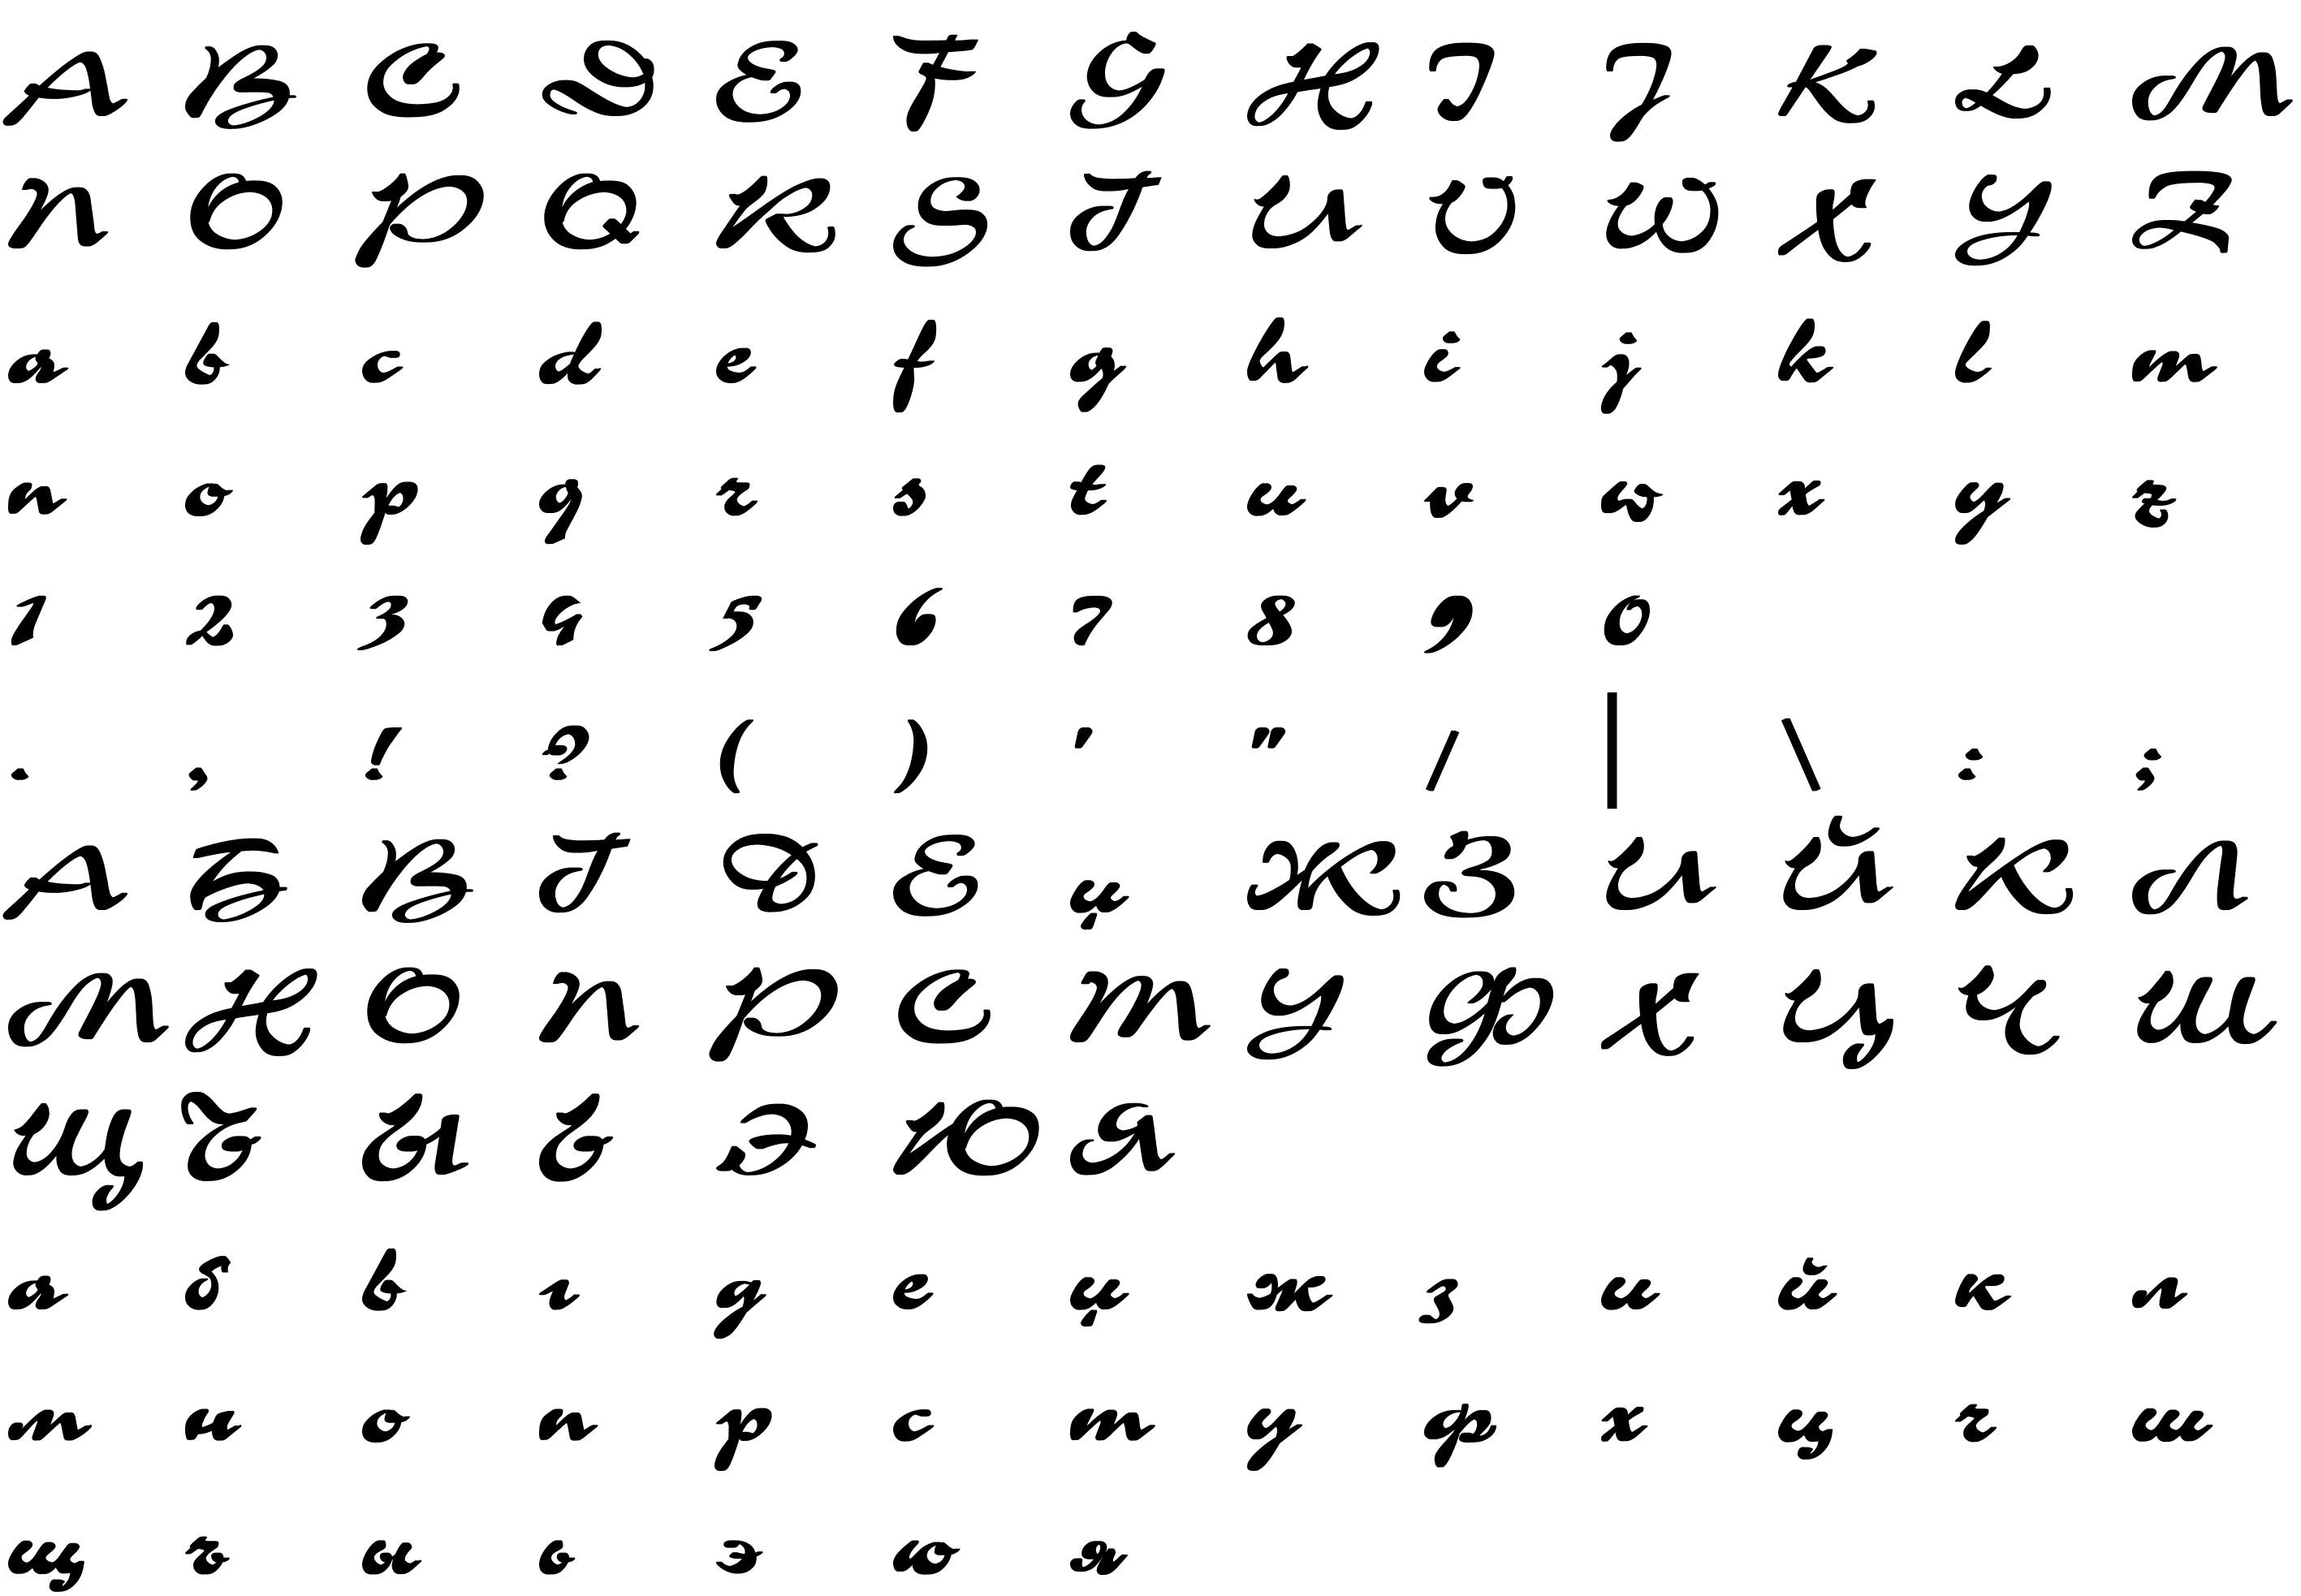 A B C D E F G H I J K L M
N O P Q R S T U V W X Y Z
a b c d e f g h i j k l m
n o p q r s t u v w x y z
1 2 3 4 5 6 7 8 9 0
. , ! ? ( ) ' " / | \ : ;
А Б В Г Д Е ų Ж З И Й К Л
М Н О П Р С Т У Ф Х Ц Ч Ш
Щ Ъ Ы Ь Э Ю Я
а б в г д е ų ж з и й к л
м н о п р с т у ф х ц ч ш
щ ъ ы ь э ю я